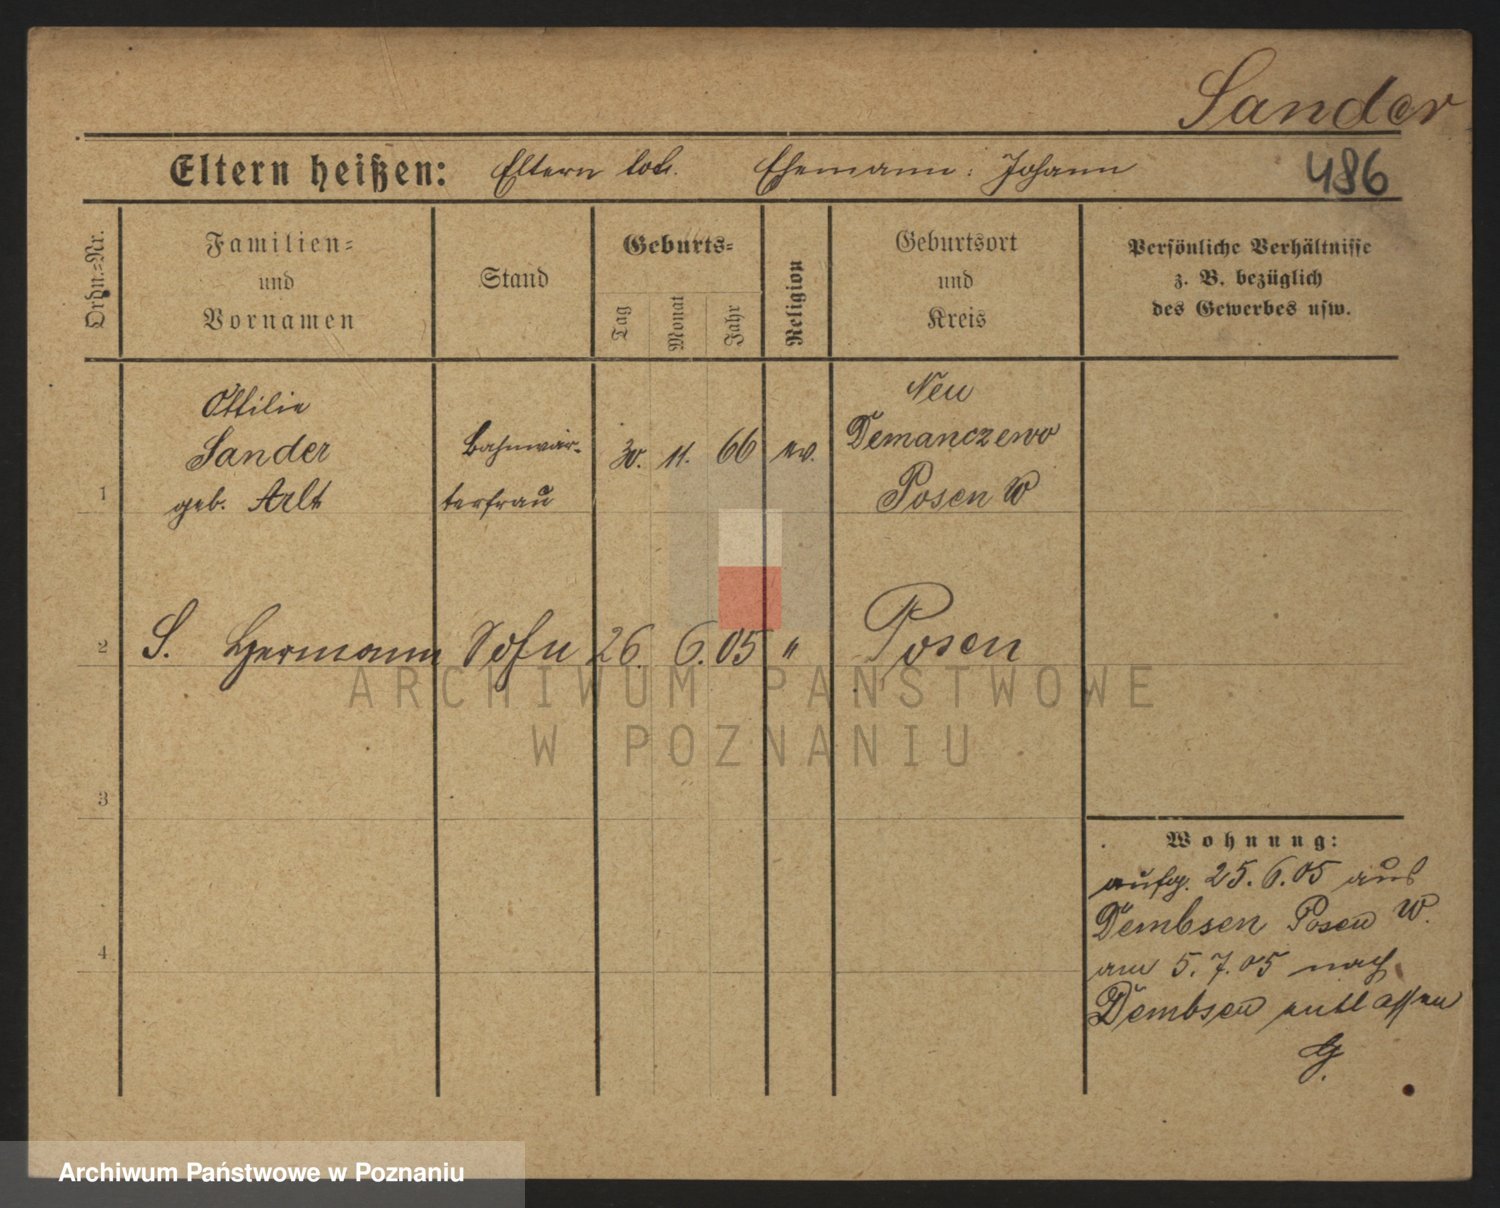 Sander
Eltern heißen: Eltern tot. Ehemann: Johann
486
Ordn.-Nr.
Familien-
und
Vornamen
Stand
Geburts-
Tag
Monat
Jahr
Religion
Geburtsort
und
Kreis
Persönliche Verhältnisse
z. B. bezüglich
des Gewerbes usw.
1
Ottilie
Sander
geb. Arlt
Bahnwär-
terfrau
30. 11. 66 ev.
Neu
Demanczewo
Posen W
2 S. Hermann Sohn 26. 6. 05 " Posen
3
4
Wohnung:
aufg. 25.6.05 aus
Dembsen Posen W.
am 5.7.05 nach
Dembsen entlassen
G.
ARCHIWUM PAŃSTWOWE
W POZNANIU
Archiwum Państwowe w Poznaniu